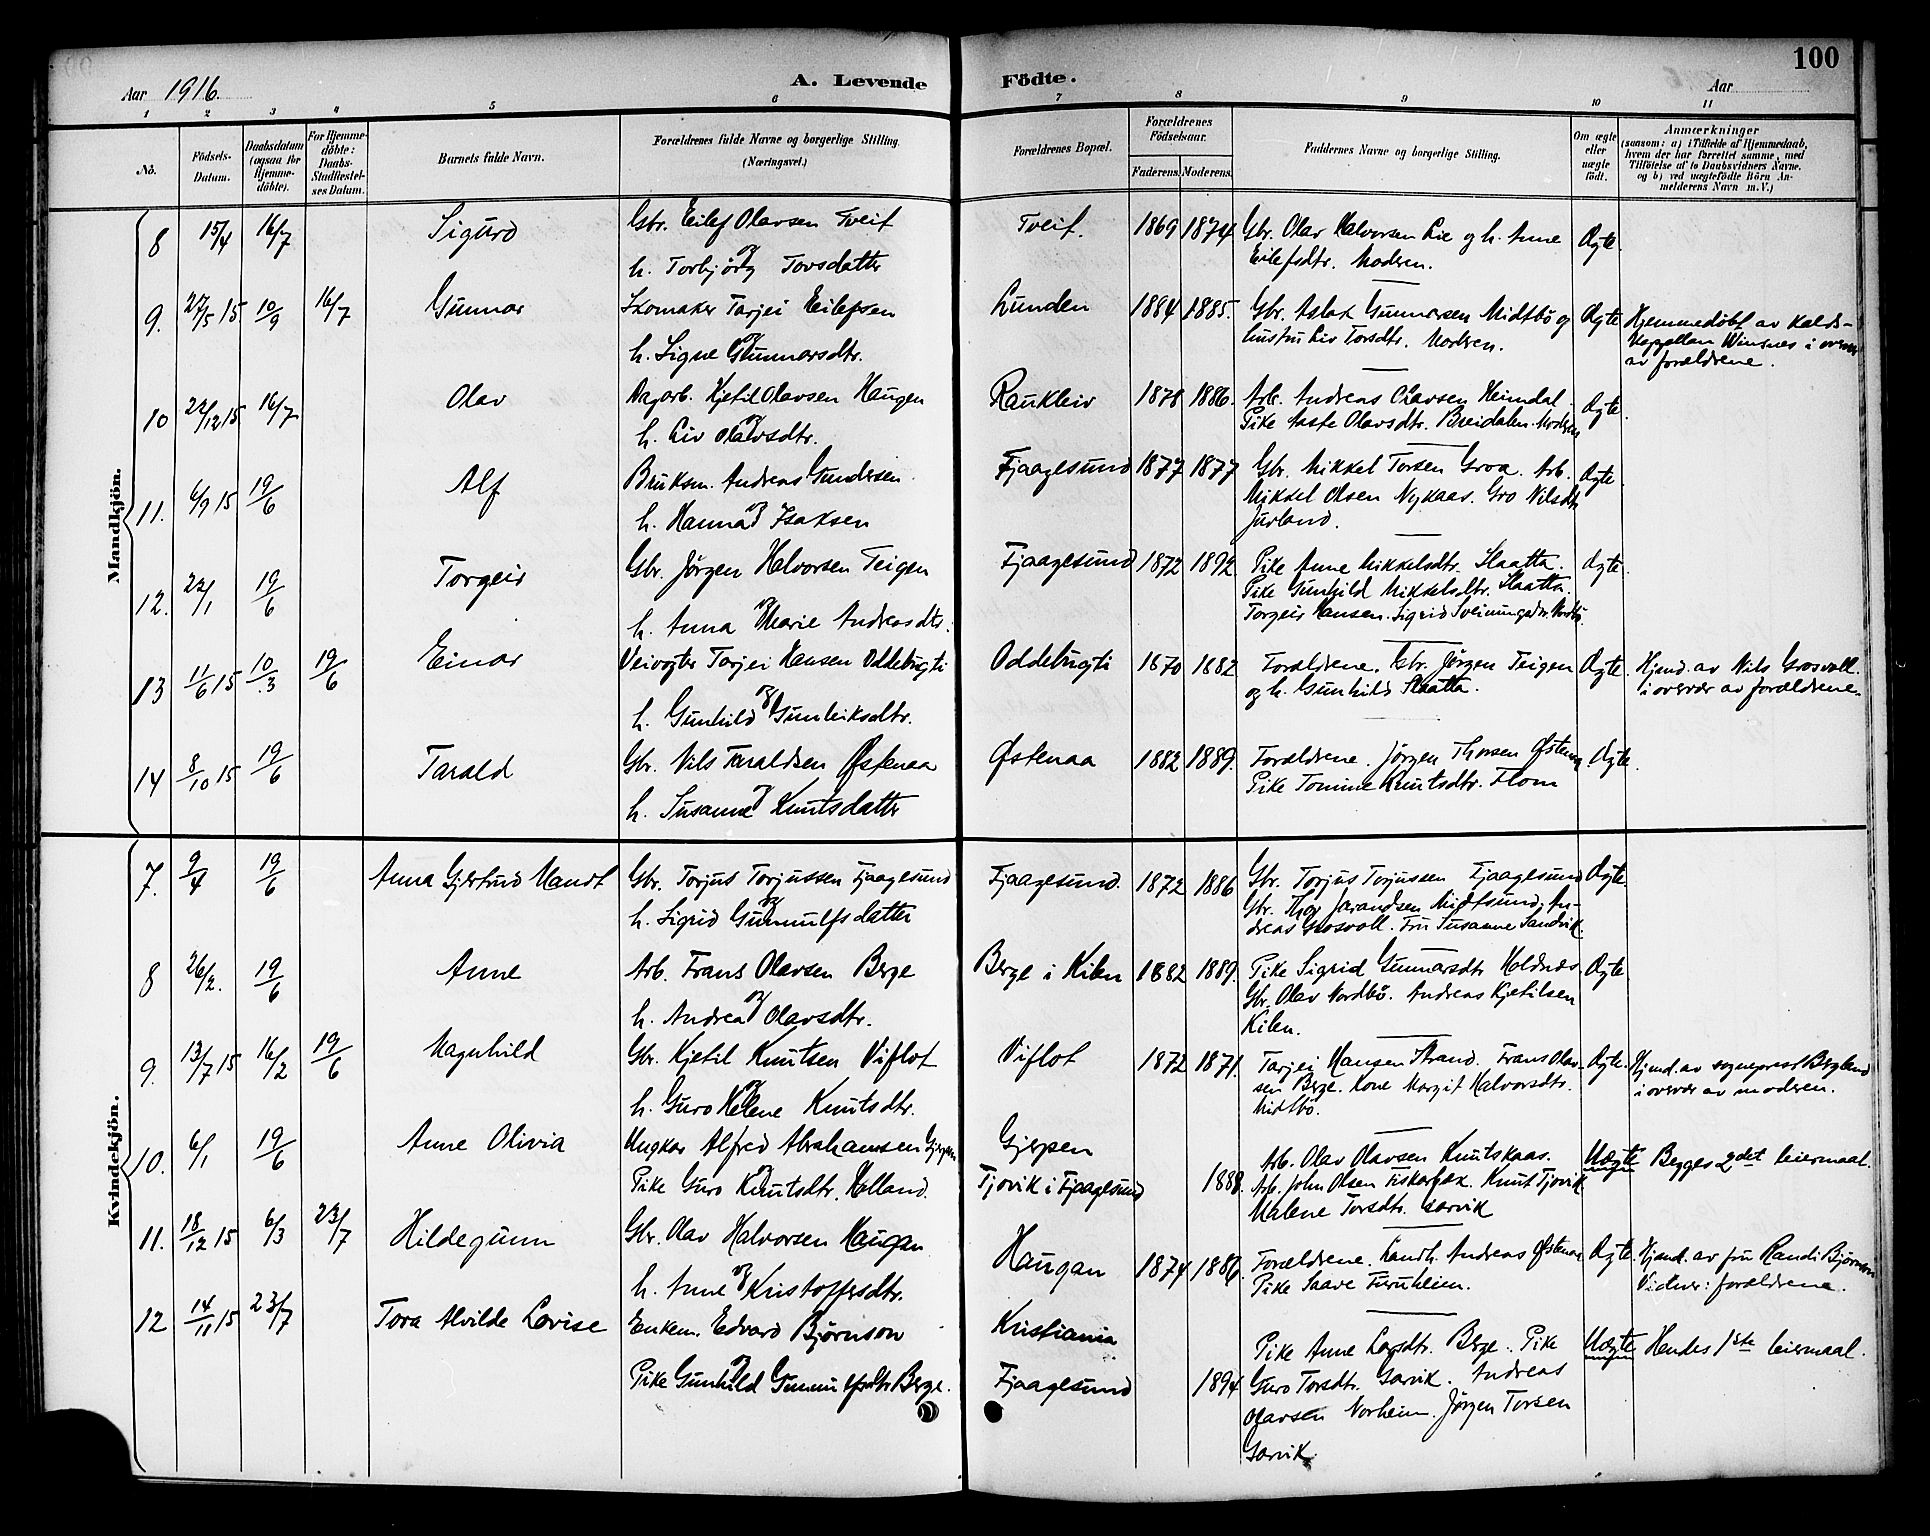 100
Aar 1916.
A. Levende
Födte.
Aar
1 2 3 4 5 6 7 8 9 10 11
No.
Födsels-Datum.
Daabsdatum (ogsaa for Hjemme-döbte).
For Hjemme-döbte: Daabs-Stadfæstel-ses Datum.
Barnets fulde Navn.
Forældrenes fulde Navne og borgerlige Stilling. (Næringsvei.)
Forældrenes Bopæl.
Forældrenes Födselsaar.
Faderens. Moderens.
Faddernes Navne og borgerlige Stilling.
Om ægte eller uægte födt.
Anmærkninger
(saasom: a) i Tilfælde af Hjemmedaab,
hvem der har forrettet samme, med
Tilföielse af to Daabsvidners Navne.
og b) ved uægtefödte Börn An-
melderens Navn m.V.)
Mandkjön.
8 15/4 16/7 Sigurd Gbr. Eilef Olavsen Tveit Tveit. 1869 1874 Gbr. Olav Halvorsen Lie og h. Anne Ægte.
og
h. Torbjörg Tovsdatter Eilefsdtr. Moderen.
9. 27/5 15 10/9 16/7 Gunnar Skomaker Tarjei Eilefsen Lunden 1884 1885. Gbr. Aslak Gunnarsen Midtbö og Ægte Hjemmedøbt av Kalds-
og
h. Signe Gunnarsdtr. hustru Liv Torsdtr. Moderen. kappellan Winsnes i
av forældrene.
10 22/12 15 16/7 Olav Dagarb. Kjetil Olavsen Haugen Raukleiv 1878 1886. Arb. Andreas Olavsen Heimdal. Ægte.
og
h. Liv Olavsdtr. Pike Aaste Olavsdtr. Breidalen. Moderen
11. 6/9 15 19/6 Alf Bruksm. Andreas Gundersen Fjaagesund 1877 1877 Gbr. Mikkel Torsen Groa. Arb. Ægte.
og
h. Hanna Isaksen Mikkel Olsen Nykaas. Gro Nilsdtr.
Jurland.
12. 22/1 19/6 Torgeir Gbr. Jörgen Halvorsen Teigen Fjaagesund 1872 1892. Pike Anne Mikkelsdtr. Slaatta. Ægte.
og
h. Anna Marie Andreasdtr. Pike Gunhild Mikkelsdtr. Slaatta.
Torgeir Hansen. Sigrid Sveinungsdtr. Nordbö.
13 11/6 15 10/3 19/6 Einar Veivogter Tarjei Hansen Oddebugti Oddebugti 1870 1882 Forældrene. Gbr. Jörgen Teigen Ægte. Hjemd. av Nils Grosvoll.
og
h. Gunhild Gunleiksdtr. og h. Gunhild Slaatta. i overvær av forældrene.
14 8/10 15 19/6 Tarald Gbr. Nils Taraldsen Østenaa Østenaa 1882 1889. Forældrene. Jörgen Thorsen Østenaa. Ægte.
og
h. Susanne Knutsdatter Pike Tomine Knutsdtr. Flom
Kvindekjön.
7. 9/4 19/6 Anna Gjertrud Mandt Gbr. Torjus Torjussen Fjaagesund Fjaagesund. 1872 1886 Gbr. Torjus Torjussen Fjaagesund Ægte.
og
h. Sigrid Gunnulfsdatter Gbr. Thor Jarandsen Midtsund, An-
dreas Grosvoll. Fru Susanne Sandvik.
8 26/2. 19/6 Anne Arb. Frans Olavsen Berge Berge i Kilen 1882 1889. Pike Sigrid Gunnarsdtr Holdnes. Ægte.
og
h. Andrea Olavsdtr. Gbr. Olav Nordbö. Andreas Kjetilsen
Kilen.
9. 13/7 15 16/2 19/6 Magnhild Gbr. Kjetil Knutsen Viflot Viflot 1872 1871. Tarjei Hansen Strand. Frans Olav- Ægte. Hjemd. av sogneprest Bergland
og
h. Guro Helene Knutsdtr. sen Berge. Kone Margit Halvorsdtr. i overvær av moderen.
Midtbö.
10. 6/1 19/6 Anne Olivia Ungkar Alfred Abrahamsen Gjerpen Gjerpen Arb. Olav Olavsen Knutskaas. Uægte Begges 2det leiermaal.
og
Pike Guro Knutsdtr. Holland. Tjovik i Fjaagesund 1888. Arb. John Olsen Fiskarbæk. Knut Tjovik
Malene Torsdtr. Garvik
11. 18/12 15 6/3 23/7 Hildegunn Gbr. Olav Halvorsen Haugan Haugan 1874 1886. Forældrene. Landh. Andreas Østenaa Ægte. Hjemd. av fru Randi Bjørnson
og
h. Anne Kristoffersdtr. Pike Saave Furuheim. Vidner: forældrene.
12 14/11 15 23/7 Tora Alvilde Lovise Enkem. Edvard Bjørnson Kristiania Pike Anne Larsdtr. Berge. Pike Uægte Hendes 1ste leiermaal.
og
Pike Gunhild Gunnulfsdtr Berge. Fjaagesund 1894 Guro Torsdtr. Garvik. Andreas
Olavsen Norheim. Jörgen Torsen
Garvik.